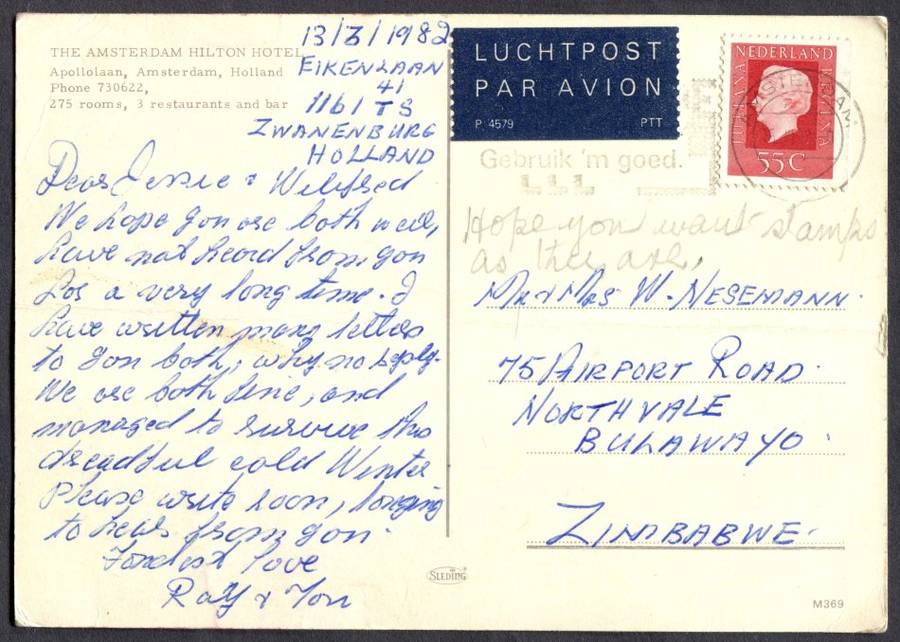 THE AMSTERDAM HILTON HOTEL
Apollolaan, Amsterdam, Holland
Phone 730622,
275 rooms, 3 restaurants and bar
13/3/1982
EIKENLAAN
41
1161 TS
ZWANENBURG
HOLLAND
Dear Jessie & Wilfred
We hope you are both well,
have not heard from you
for a very long time. I
have written many letters
to you both, why no reply.
We are both fine, and
managed to survive this
dreadful cold Winter
Please write soon, longing
to hear from you.
Fondest Love
Ray & Ton
LUCHTPOST
PAR AVION
P 4579 PTT
NEDERLAND
JULIANA REGINA
55C
AMSTERDAM
Gebruik 'm goed.
Hope you want stamps
as they are.
MR & MRS W. NESEMANN.
75 AIRPORT ROAD.
NORTHVALE
BULAWAYO.
ZIMBABWE.
SLEDING
M369